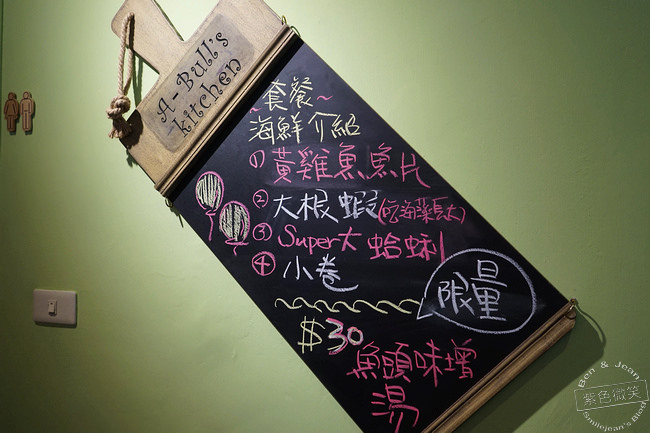 A-Bull's
kitchen
~套餐~
海鮮介紹
① 黃雞魚魚片
② 大根蝦(吃海藻長大)
③ Super大蛤蜊
④ 小卷
限量
$30
魚頭味增
湯
Ben & Jean
紫色微笑
Smilejean's Blog